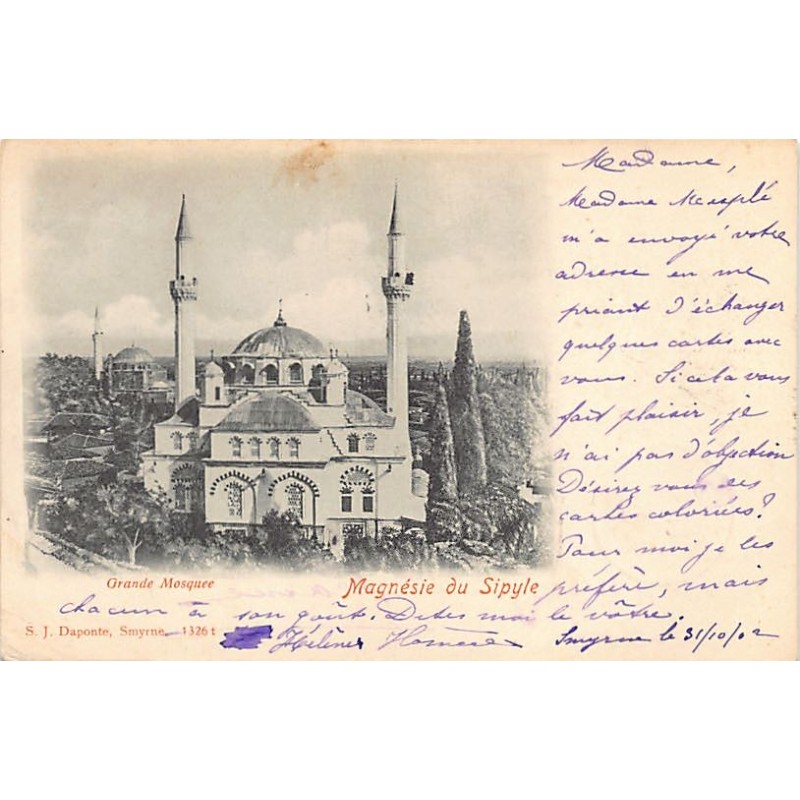 Madame,
Madame Mesplé
m'a envoyé votre
adresse en me
priant d'échanger
quelques cartes avec
vous. Si cela vous
fait plaisir, je
n'ai pas d'objection
Désirez vous des
cartes coloriées?
Pour moi je les
préfère, mais
chacun à son goût. Dites moi le vôtre.
Smyrne le 31/10/02
Grande Mosquee
Magnésie du Sipyle
S. J. Daponte, Smyrne. 1326 t